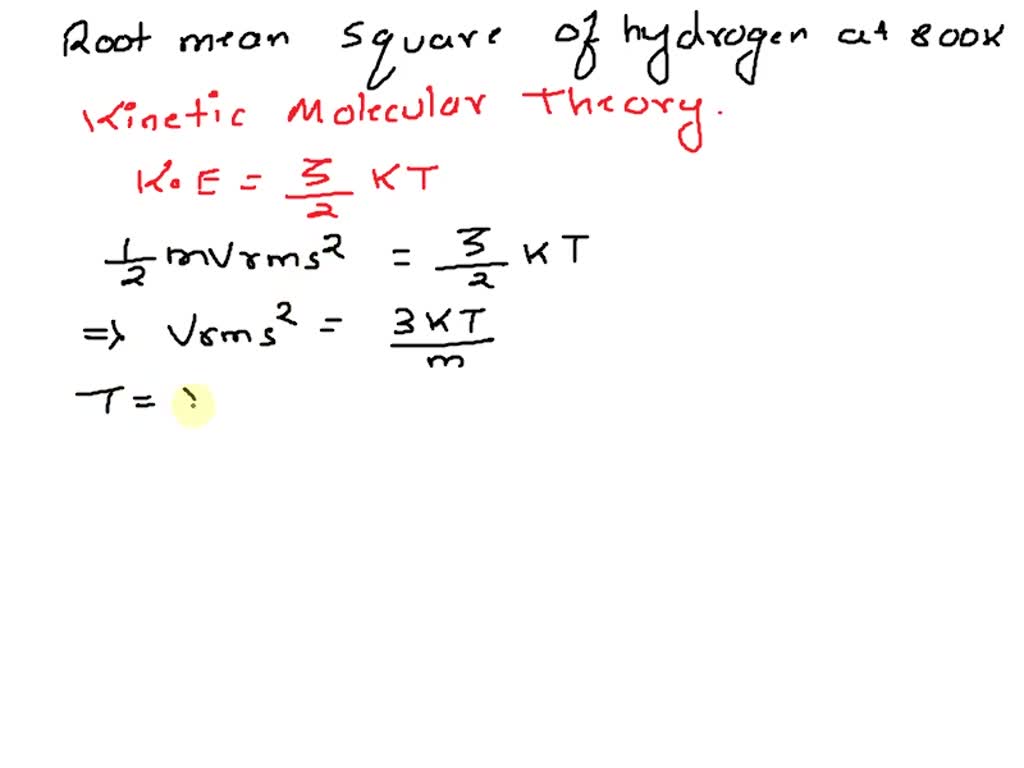 Root mean square of hydrogen at 800K
Kinetic Molecular Theory.
K.E = 3/2 KT
1/2 mVrms² = 3/2 KT
=> Vrms² = 3KT/m
T =